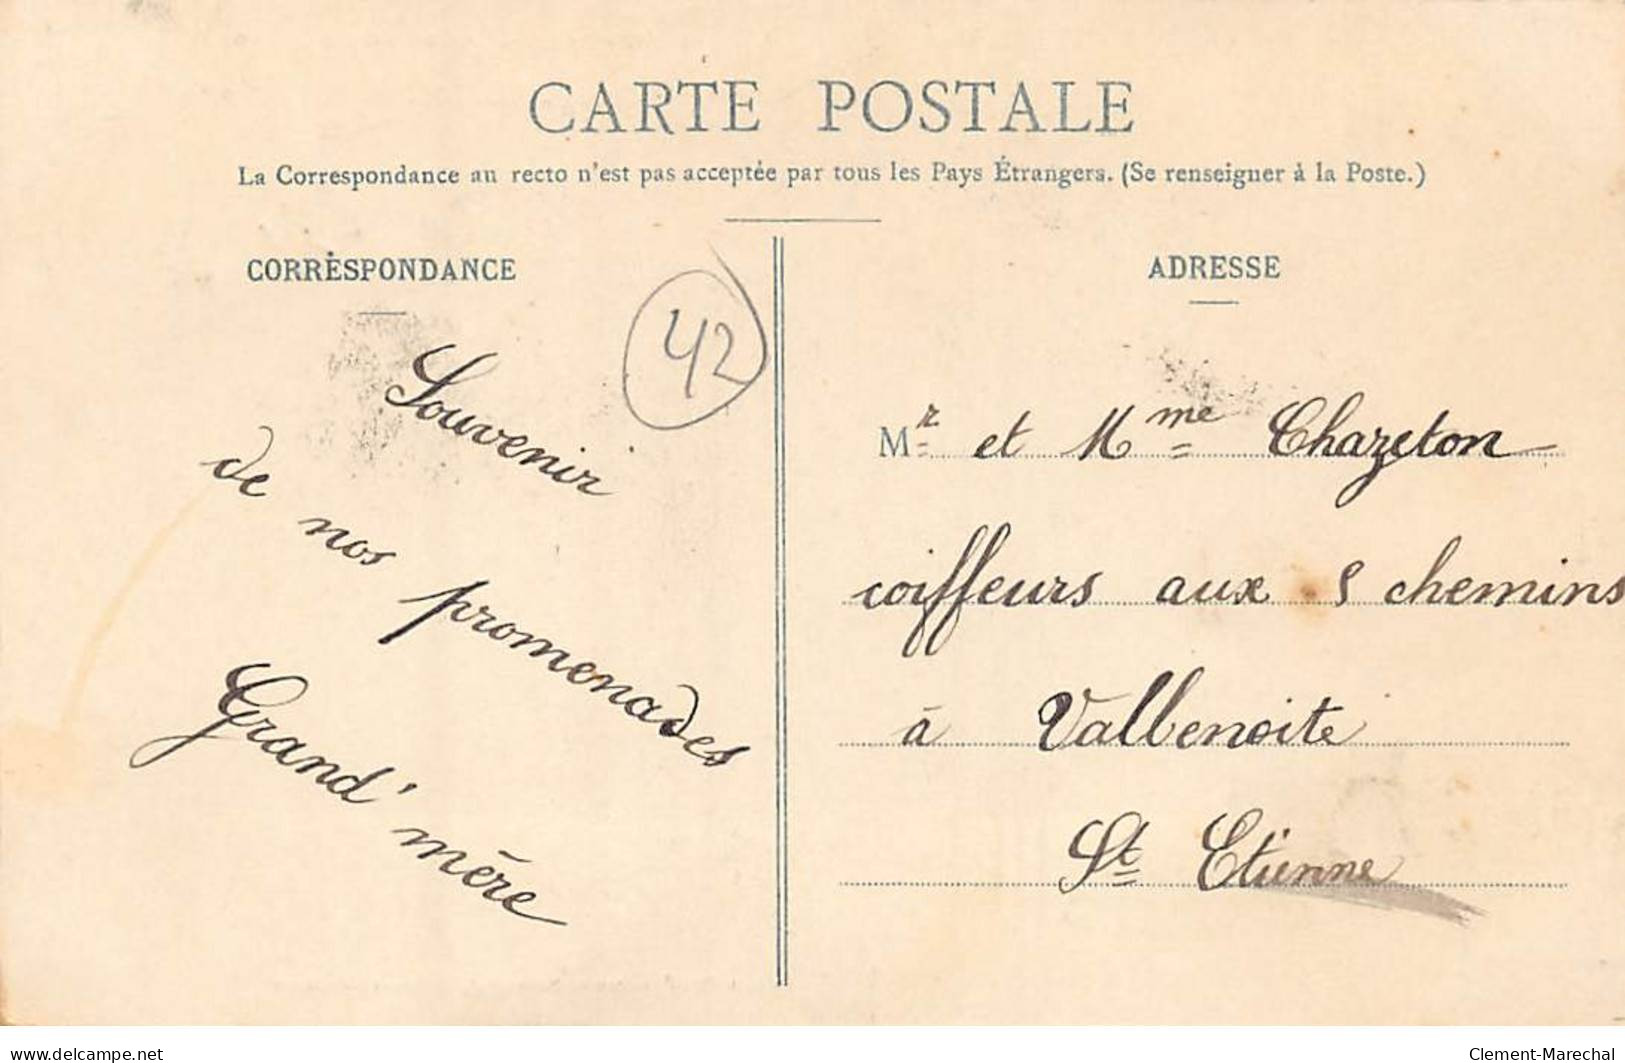 CARTE POSTALE
La Correspondance au recto n'est pas acceptée par tous les Pays Étrangers. (Se renseigner à la Poste.)
CORRESPONDANCE
42
Souvenir
de nos promenades
Grand' mère
ADRESSE
Mr et Mme Chazeton
coiffeurs aux chemins
à Valbenoite
St Etienne
www.delcampe.net
Clement-Marechal